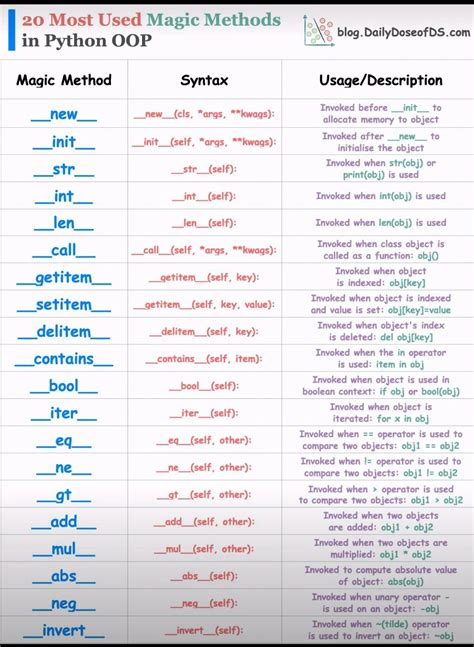 20 Most Used Magic Methods
in Python OOP
blog.DailyDoseofDS.com
Magic Method Syntax Usage/Description
__new__ __new__(cls, *args, **kwags): Invoked before __init__ to
allocate memory to object
__init__ __init__(self, *args, **kwags): Invoked after __new__ to
initialise the object
__str__ __str__(self): Invoked when str(obj) or
print(obj) is used
__int__ __int__(self): Invoked when int(obj) is used
__len__ __len__(self): Invoked when len(obj) is used
__call__ __call__(self, *args, **kwags): Invoked when class object is
called as a function: obj()
__getitem__ __getitem__(self, key): Invoked when object
is indexed: obj[key]
__setitem__ __getitem__(self, key, value): Invoked when object is indexed
and value is set: obj[key]=value
__delitem__ __delitem__(self, key): Invoked when object's index
is deleted: del obj[key]
__contains__ __contains__(self, item): Invoked when the in operator
is used: item in obj
__bool__ __bool__(self): Invoked when object is used in
boolean context: if obj or bool(obj)
__iter__ __iter__(self): Invoked when object is
iterated: for x in obj
__eq__ __eq__(self, other): Invoked when == operator is used to
compare two objects: obj1 == obj2
__ne__ __ne__(self, other): Invoked when != operator is used to
compare two objects: obj1 != obj2
__gt__ __gt__(self, other): Invoked when > operator is used
to compare two objects: obj1 > obj2
__add__ __add__(self, other): Invoked when two objects
are added: obj1 + obj2
__mul__ __mul__(self, other): Invoked when two objects are
multiplied: obj1 * obj2
__abs__ __abs__(self): Invoked to compute absolute value
of object: abs(obj)
__neg__ __neg__(self): Invoked when unary operator -
is used on an object: -obj
__invert__ __invert__(self): Invoked when ~(tilde) operator
is used to invert an object: ~obj